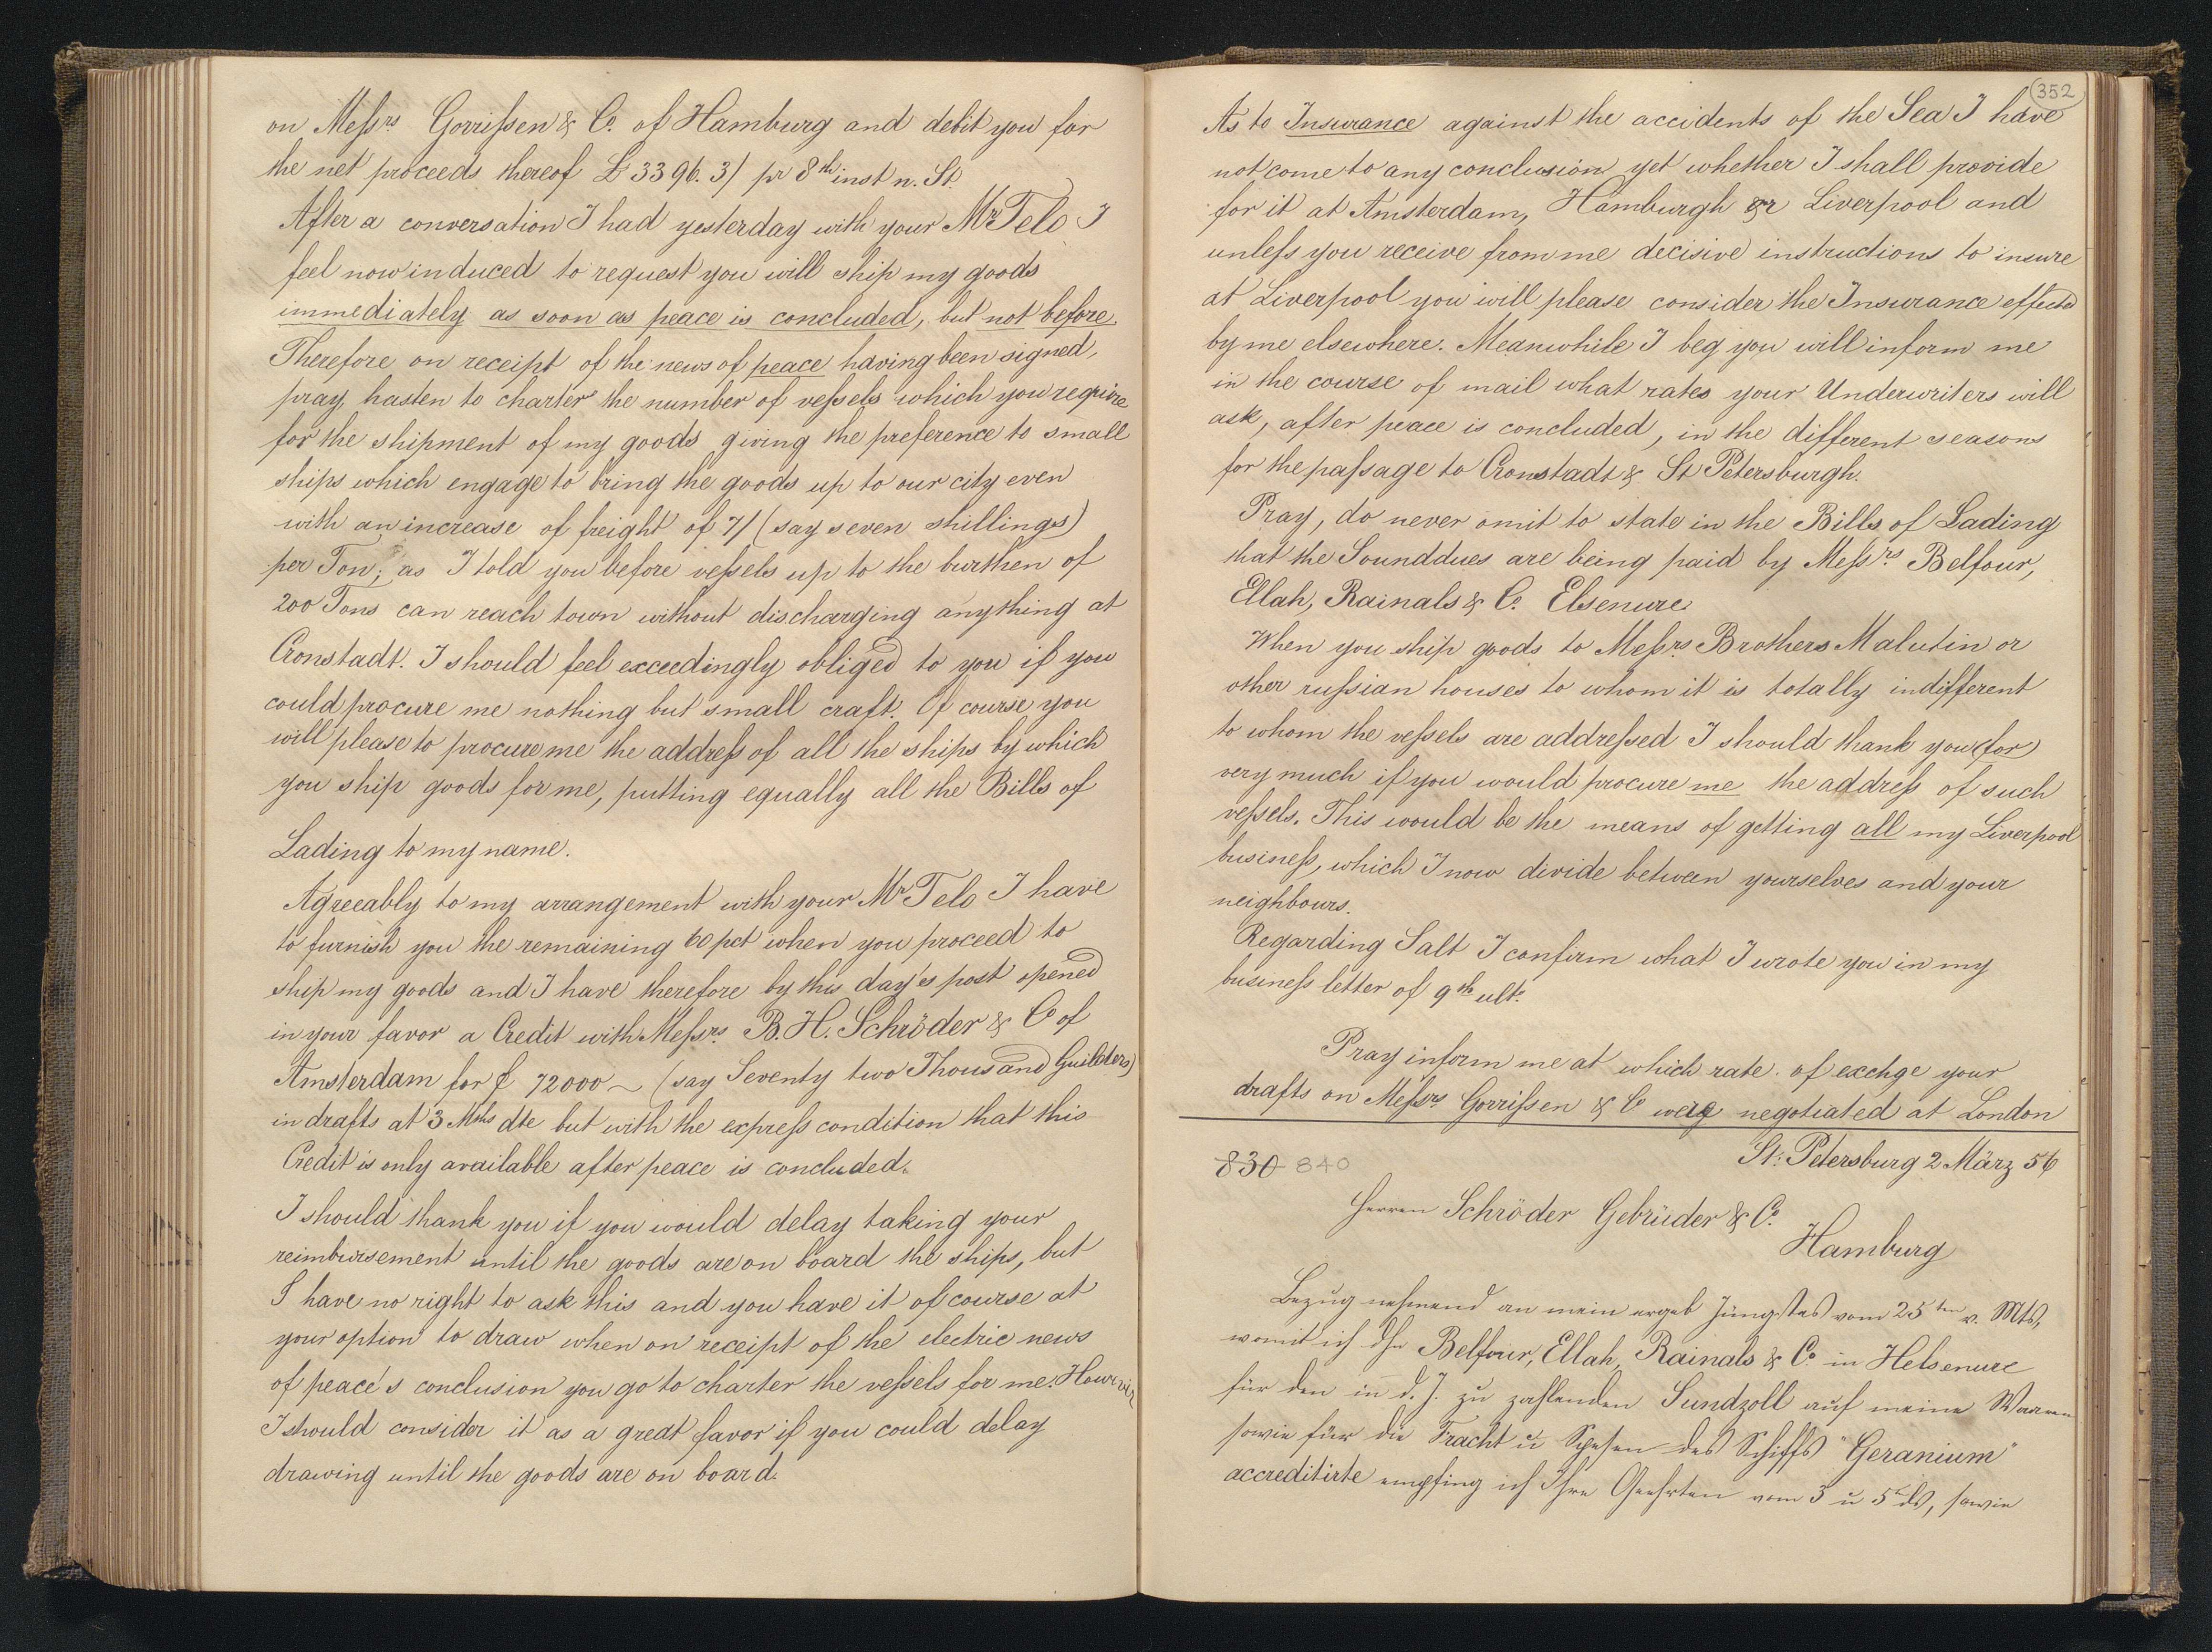 on Meſsrs Gorriſsen & Co. of Hamburg and debit you for
the net proceeds thereof £ 3396. 3/ pr 8th inst n. St.
After a conversation I had yesterday with your Mr Telo I
feel now induced to request you will ship my goods
immediately as soon as peace is concluded, but not before.
Therefore on receipt of the news of peace having been signed,
pray, hasten to charter the number of veſsels which you require
for the shipment of my goods giving the preference to small
ships which engage to bring the goods up to our city even
with an increase of freight of 7/ (say seven shillings)
per Ton; as I told you before veſsels up to the burthen of
200 Tons can reach town without discharging anything at
Cronstadt. I should feel exceedingly obliged to you if you
could procure me nothing but small craft. Of course you
will please to procure me the addreſs of all the ships by which
you ship goods for me, putting equally all the Bills of
Lading to my name.
Agreeably to my arrangement with your Mr Telo I have
to furnish you the remaining 60 pct when you proceed to
ship my goods and I have therefore by this day's post opened
in your favor a Credit with Meſsrs B. H. Schröder & Co of
Amsterdam for f 72000~ (say Seventy two Thousand Guilders)
in drafts at 3 Mths dte but with the expreſs condition that this
Credit is only available after peace is concluded.
I should thank you if you would delay taking your
reimbursement until the goods are on board the ships, but
I have no right to ask this and you have it of course at
your option to draw when on receipt of the electric news
of peace's conclusion you go to charter the veſsels for me. However
I should consider it as a great favor if you could delay
drawing until the goods are on board.
352
As to Insurance against the accidents of the Sea I have
not come to any conclusion yet whether I shall provide
for it at Amsterdam, Hamburgh or Liverpool and
unleſs you receive from me decisive instructions to insure
at Liverpool you will please consider the Insurance effected
by me elsewhere. Meanwhile I beg you will inform me
in the course of mail what rates your Underwriters will
ask, after peace is concluded, in the different seasons
for the paſsage to Cronstadt & St Petersburgh.
Pray, do never omit to state in the Bills of Lading
that the Sounddues are being paid by Meſsrs Belfour,
Ellah, Rainals & Co. Elsenure.
When you ship goods to Meſsrs Brothers Malutin or
other ruſsian houses to whom it is totally indifferent
to whom the veſsels are addreſsed I should thank you (for)
very much if you would procure me the addreſs of such
veſsels. This would be the means of getting all my Liverpool
busineſs, which I now divide between yourselves and your
neighbours.
Regarding Salt I confirm what I wrote you in my
busineſs letter of 9th ulto.
Pray inform me at which rate of exchge your
drafts on Meſsrs Gorriſsen & Co were negotiated at London
St. Petersburg 2 März 56
830 840
Herren Schröder Gebrüder & Co.
Hamburg
Bezug nehmend an mein ergeb Jüngstes vom 25ten v. Mts,
womit ich Belfour, Ellah, Rainals & Co in Helsenure
für den in d. J. zu zahlenden Sundzoll auf meine Waaren
sowie für die Fracht u Spesen des Schiffs "Geranium"
accreditirte empfing ich Ihre Geehrten vom 3 u 5 ds, sowie